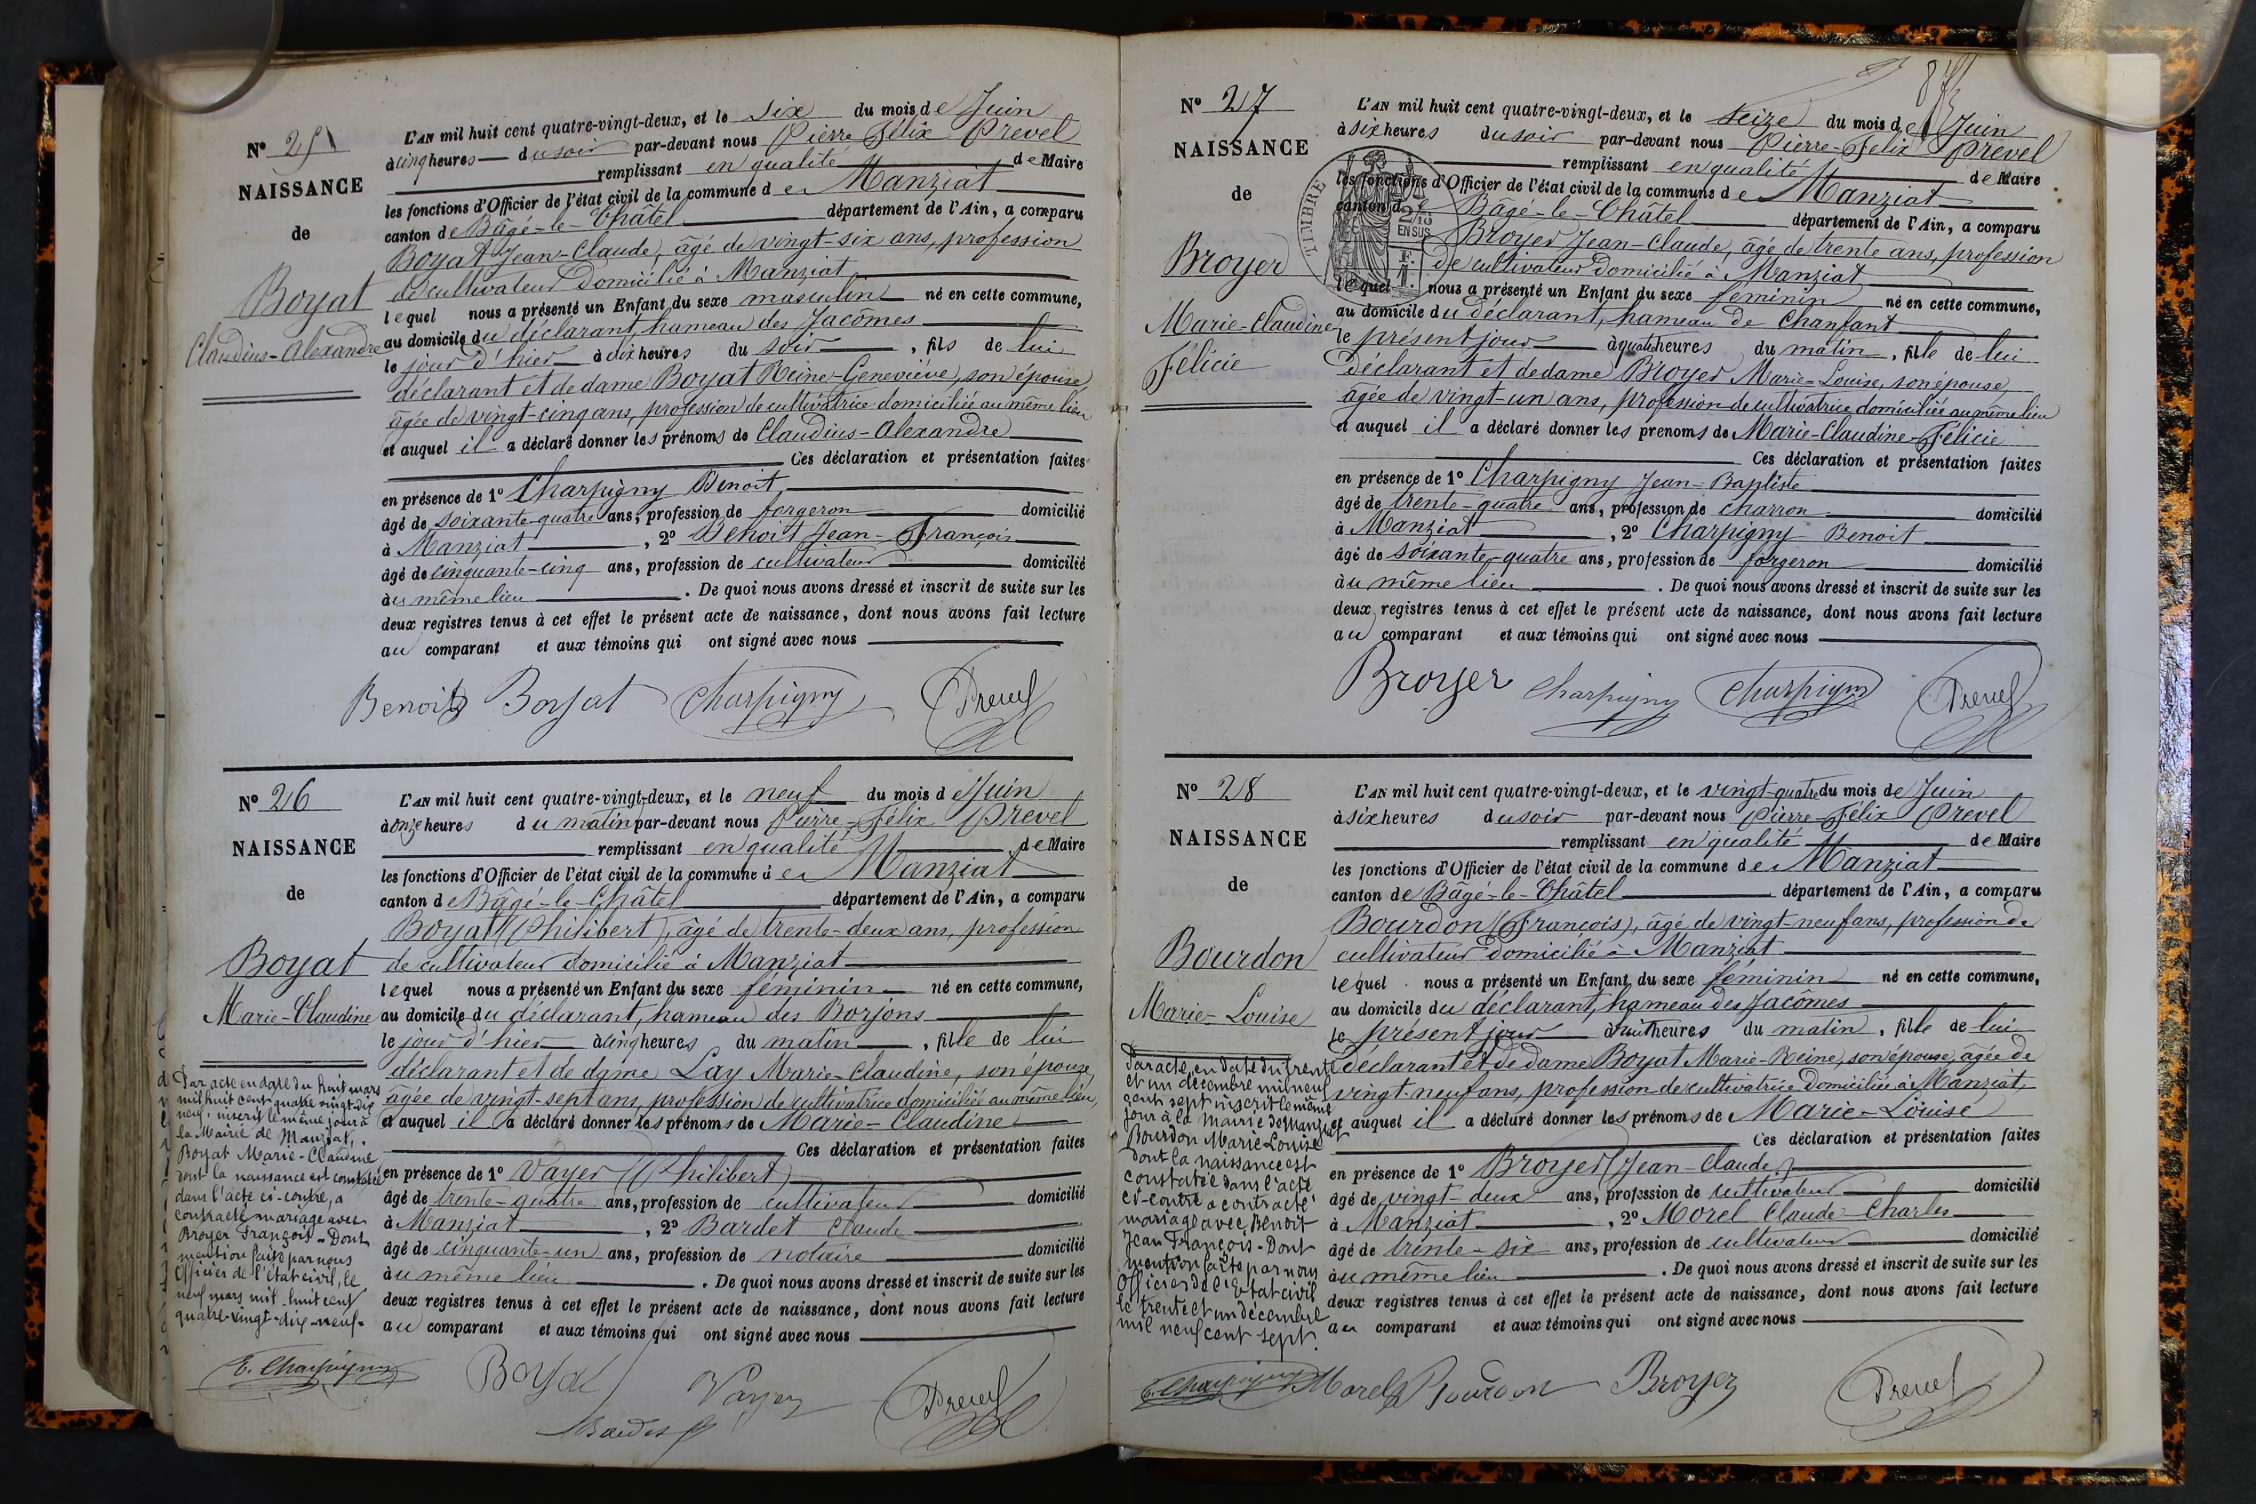 N° 25
NAISSANCE
de
Boyat
Claudius-Alexandre
L'AN mil huit cent quatre-vingt-deux, et le six du mois de Juin
à cinq heures du soir par-devant nous Pierre Félix Prevel
remplissant en qualité de Maire
les fonctions d'Officier de l'état civil de la commune de Manziat
canton de Bâgé-le-Châtel département de l'Ain, a comparu
Boyat Jean-Claude, âgé de vingt-six ans, profession
de cultivateur domicilié à Manziat
lequel nous a présenté un Enfant du sexe masculin né en cette commune,
au domicile du déclarant, hameau des Jacômes
le jour d'hier à dix heures du soir, fils de lui
déclarant et de dame Boyat Reine-Geneviève, son épouse,
âgée de vingt-cinq ans, profession de cultivatrice domiciliée au même lieu
et auquel il a déclaré donner les prénoms de Claudius-Alexandre
Ces déclaration et présentation faites
en présence de 1° Charpigny Benoit,
âgé de soixante-quatre ans, profession de forgeron domicilié
à Manziat, 2° Benoit Jean-François
âgé de cinquante-cinq ans, profession de cultivateur domicilié
au même lieu. De quoi nous avons dressé et inscrit de suite sur les
deux registres tenus à cet effet le présent acte de naissance, dont nous avons fait lecture
au comparant et aux témoins qui ont signé avec nous
Benoit Boyat Charpigny Prevel
N° 26
NAISSANCE
de
Boyat
Marie-Claudine
Par acte en date du huit mars
mil huit cent quatre vingt-dix
neuf, inscrit le même jour à
la Mairie de Manziat,
Boyat Marie-Claudine
dont la naissance est constatée
dans l'acte ci-contre, a
contracté mariage avec
Broyer François. Dont
mention faite par nous
Officier de l'état civil, le
neuf mars mil huit cent
quatre-vingt-dix-neuf.
E. Charpigny
L'AN mil huit cent quatre-vingt-deux, et le neuf du mois de Juin
à onze heures du matin par-devant nous Pierre-Félix Prevel
remplissant en qualité de Maire
les fonctions d'Officier de l'état civil de la commune de Manziat
canton de Bâgé-le-Châtel département de l'Ain, a comparu
Boyat (Philibert), âgé de trente-deux ans, profession
de cultivateur domicilié à Manziat
lequel nous a présenté un Enfant du sexe féminin né en cette commune,
au domicile du déclarant, hameau des Borjons
le jour d'hier à cinq heures du matin, fille de lui
déclarant et de dame Lay Marie-Claudine, son épouse
âgée de vingt-sept ans, profession de cultivatrice domiciliée au même lieu,
et auquel il a déclaré donner les prénoms de Marie-Claudine
Ces déclaration et présentation faites
en présence de 1° Vayer (Philibert)
âgé de trente-quatre ans, profession de cultivateur domicilié
à Manziat, 2° Bardet Claude
âgé de cinquante-un ans, profession de notaire domicilié
au même lieu. De quoi nous avons dressé et inscrit de suite sur les
deux registres tenus à cet effet le présent acte de naissance, dont nous avons fait lecture
au comparant et aux témoins qui ont signé avec nous
Boyat Vayer Prevel
Bardet
N° 27
NAISSANCE
de
Broyer
Marie-Claudine
Félicie
TIMBRE
2/10
EN SUS
L'AN mil huit cent quatre-vingt-deux, et le seize du mois de Juin
à six heures du soir par-devant nous Pierre-Félix Prevel
remplissant en qualité de Maire
les fonctions d'Officier de l'état civil de la commune de Manziat
canton de Bâgé-le-Châtel département de l'Ain, a comparu
Broyer Jean-Claude, âgé de trente ans, profession
de cultivateur domicilié à Manziat
lequel nous a présenté un Enfant du sexe féminin né en cette commune,
au domicile du déclarant, hameau de Chanfant
le présent jour à quatre heures du matin, fille de lui
déclarant et de dame Broyer Marie-Louise, son épouse,
âgée de vingt-un ans, profession de cultivatrice domiciliée au même lieu
et auquel il a déclaré donner les prénoms de Marie-Claudine-Félicie
Ces déclaration et présentation faites
en présence de 1° Charpigny Jean-Baptiste
âgé de trente-quatre ans, profession de charron domicilié
à Manziat, 2° Charpigny Benoit
âgé de soixante-quatre ans, profession de forgeron domicilié
au même lieu. De quoi nous avons dressé et inscrit de suite sur les
deux registres tenus à cet effet le présent acte de naissance, dont nous avons fait lecture
au comparant et aux témoins qui ont signé avec nous
Broyer Charpigny Charpigny Prevel
N° 28
NAISSANCE
de
Bourdon
Marie-Louise
Par acte en date du trente
et un décembre mil neuf
cent sept inscrit le même
jour à la mairie de Manziat
Bourdon Marie Louise
dont la naissance est
constatée dans l'acte
ci-contre a contracté
mariage avec Benoit
Jean François. Dont
mention faite par nous
Officier de l'Etat civil
le trente et un décembre
mil neuf cent sept.
E. Charpigny
L'AN mil huit cent quatre-vingt-deux, et le vingt-quatre du mois de Juin
à six heures du soir par-devant nous Pierre-Félix Prevel
remplissant en qualité de Maire
les fonctions d'Officier de l'état civil de la commune de Manziat
canton de Bâgé-le-Châtel département de l'Ain, a comparu
Bourdon (François), âgé de vingt-neuf ans, profession de
cultivateur domicilié à Manziat
lequel nous a présenté un Enfant du sexe féminin né en cette commune,
au domicile du déclarant, hameau des Jacômes
le présent jour à huit heures du matin, fille de lui
déclarant et de dame Boyat Marie-Reine, son épouse, âgée de
vingt-neuf ans, profession de cultivatrice domiciliée à Manziat,
et auquel il a déclaré donner les prénoms de Marie-Louise
Ces déclaration et présentation faites
en présence de 1° Broyer (Jean-Claude)
âgé de vingt-deux ans, profession de cultivateur domicilié
à Manziat, 2° Morel Claude-Charles
âgé de trente-six ans, profession de cultivateur domicilié
au même lieu. De quoi nous avons dressé et inscrit de suite sur les
deux registres tenus à cet effet le présent acte de naissance, dont nous avons fait lecture
au comparant et aux témoins qui ont signé avec nous
Morel Bourdon Broyer Prevel